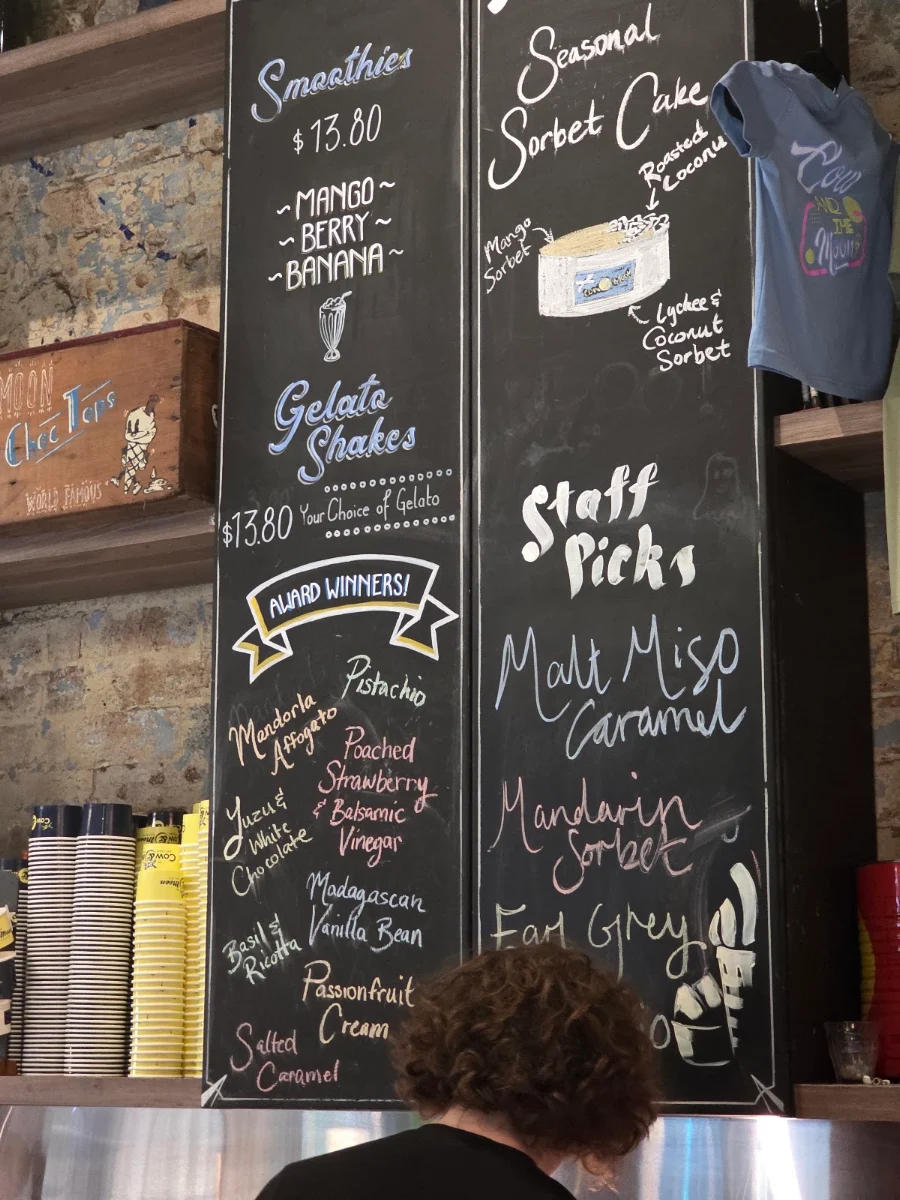 Smoothies
$13.80
~MANGO~
~BERRY~
~BANANA~
Gelato
Shakes
$13.80 Your Choice of Gelato
AWARD WINNERS!
Pistachio
Mandorla
Affogato
Poached
Strawberry
& Balsamic
Vinegar
Yuzu &
White
Chocolate
Madagascan
Vanilla Bean
Basil &
Ricotta
Passionfruit
Cream
Salted
Caramel
Seasonal
Sorbet Cake
Roasted
Coconu
Mango
Sorbet
Lychee &
Coconut
Sorbet
Staff
Picks
Malt Miso
Caramel
Mandarin
Sorbet
Earl Grey
MOON
Choc Tops
WORLD FAMOUS
Cow
AND
THE
Moon
Cow & Moon